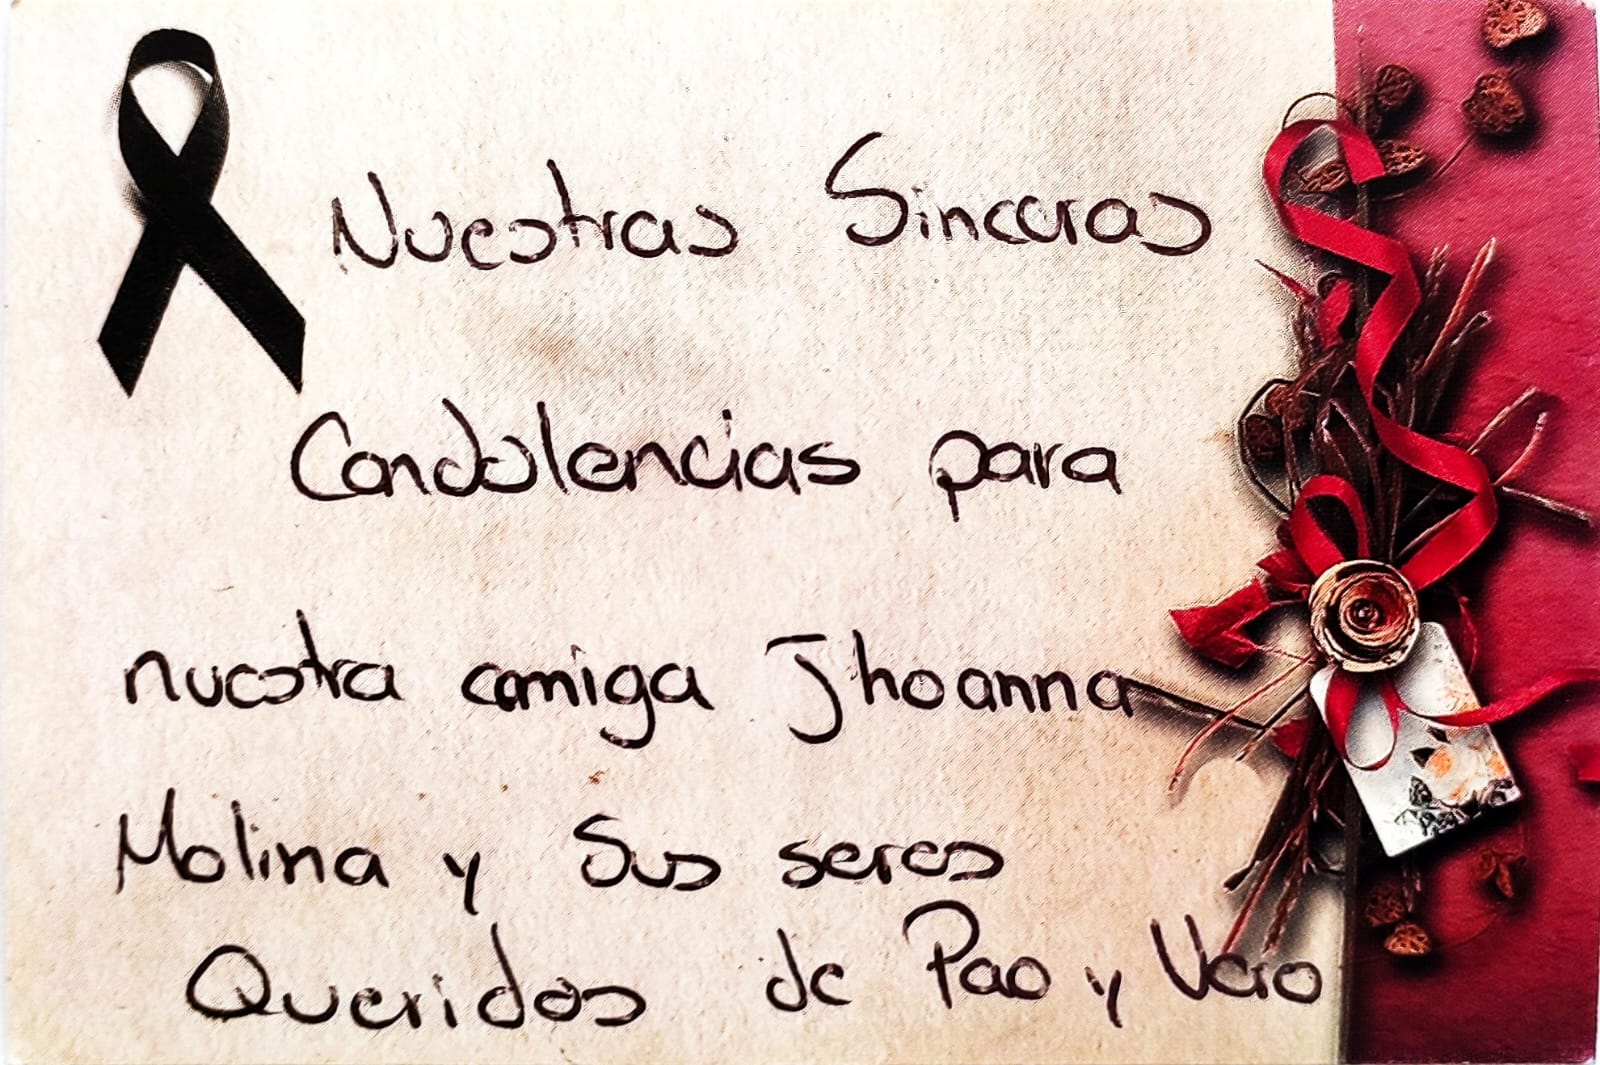 Nuestras Sinceras
Condolencias para
nuestra amiga Jhoanna
Molina y Sus seres
Queridos de Pao y Vero